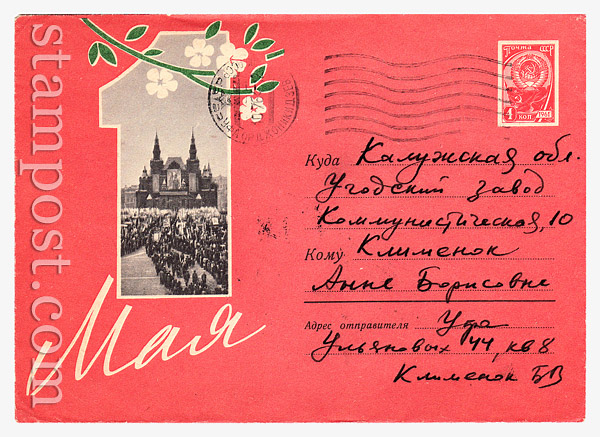 stampost.com
1
Мая
почта СССР
4
коп
Куда Калужская обл.
Угодский завод
Коммунистическая, 10
Кому Клименок
Анне Борисовне
Адрес отправителя
Ульяновых 44, кв 8
Клименок БВ